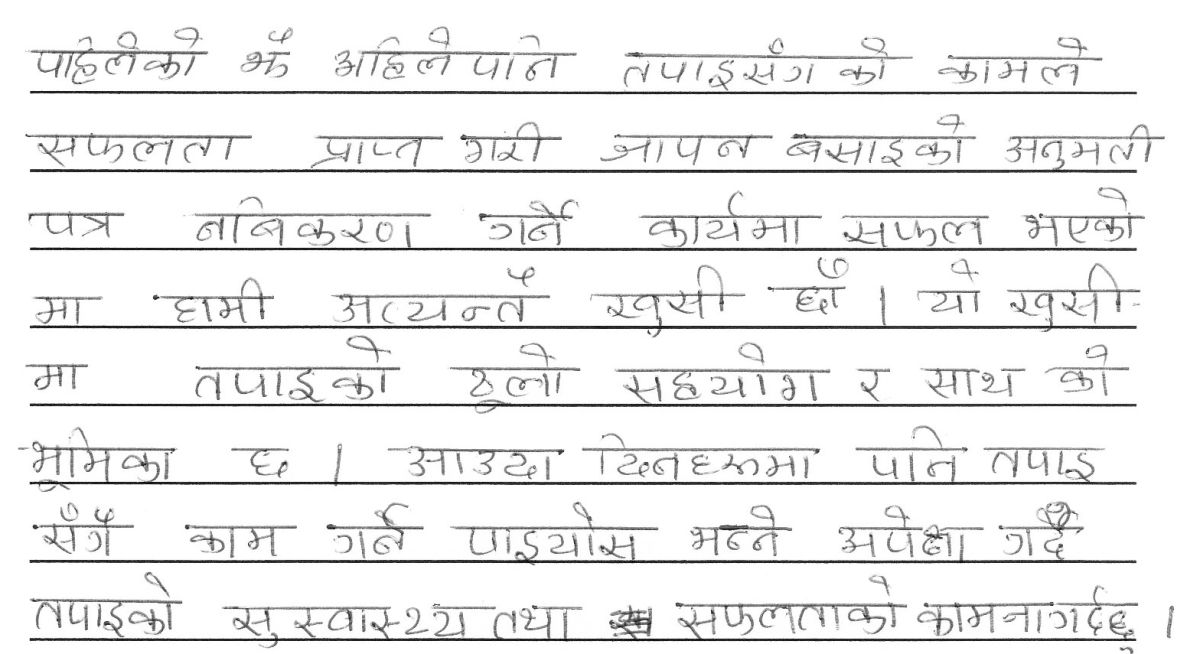 पहिलेको झैं अहिले पनि तपाइसँग को कामले
सफलता प्राप्त गरी जापन बसाइको अनुमती
पत्र नबिकरण गर्ने कार्यमा सफल भएको
मा हामी अत्यन्तै खुसी छौँ । यो खुसी-
मा तपाइको ठूलो सहयोग र साथ को
भूमिका छ । आउदा दिनहरूमा पनि तपाइ
सँगै काम गर्न पाइयोस भन्ने अपेक्षा गर्दै
तपाइको सुस्वास्थ्य तथा सफलताको कामनागर्दछु ।